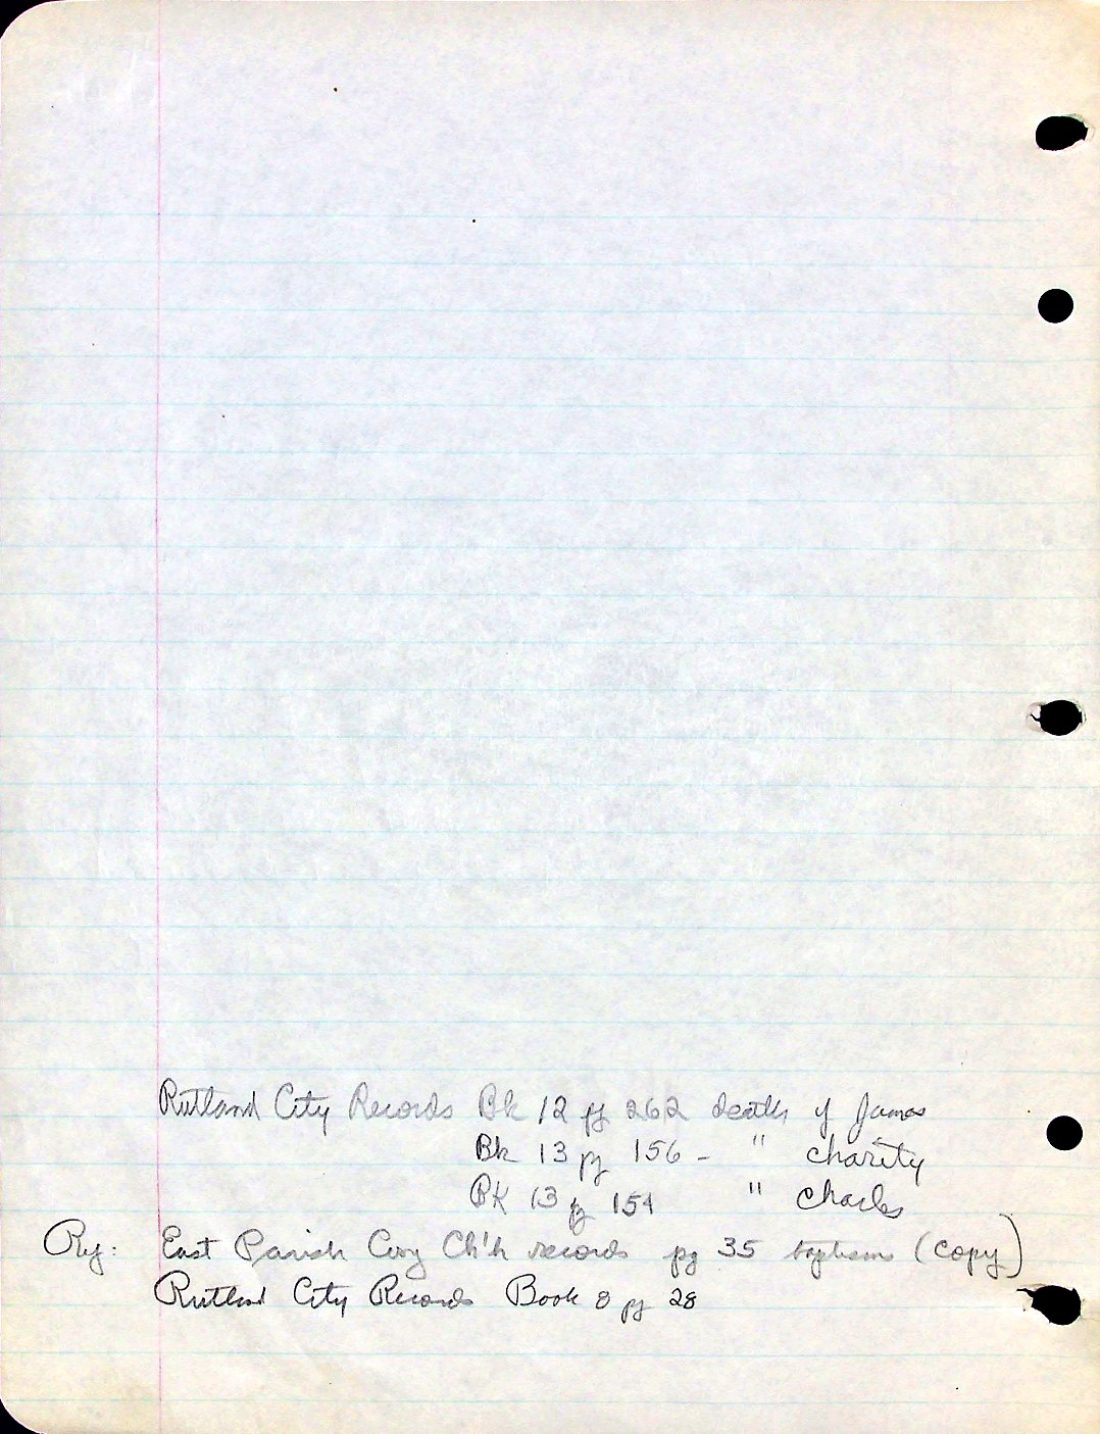 Rutland City Records Bk 12 pg 262 deaths of James
Bk 13 pg 156 - " Charity
BK 13 pg 154 " Charles
Ref: East Parish Cong Ch'h records pg 35 baptism (copy)
Rutland City Records Book 8 pg 28